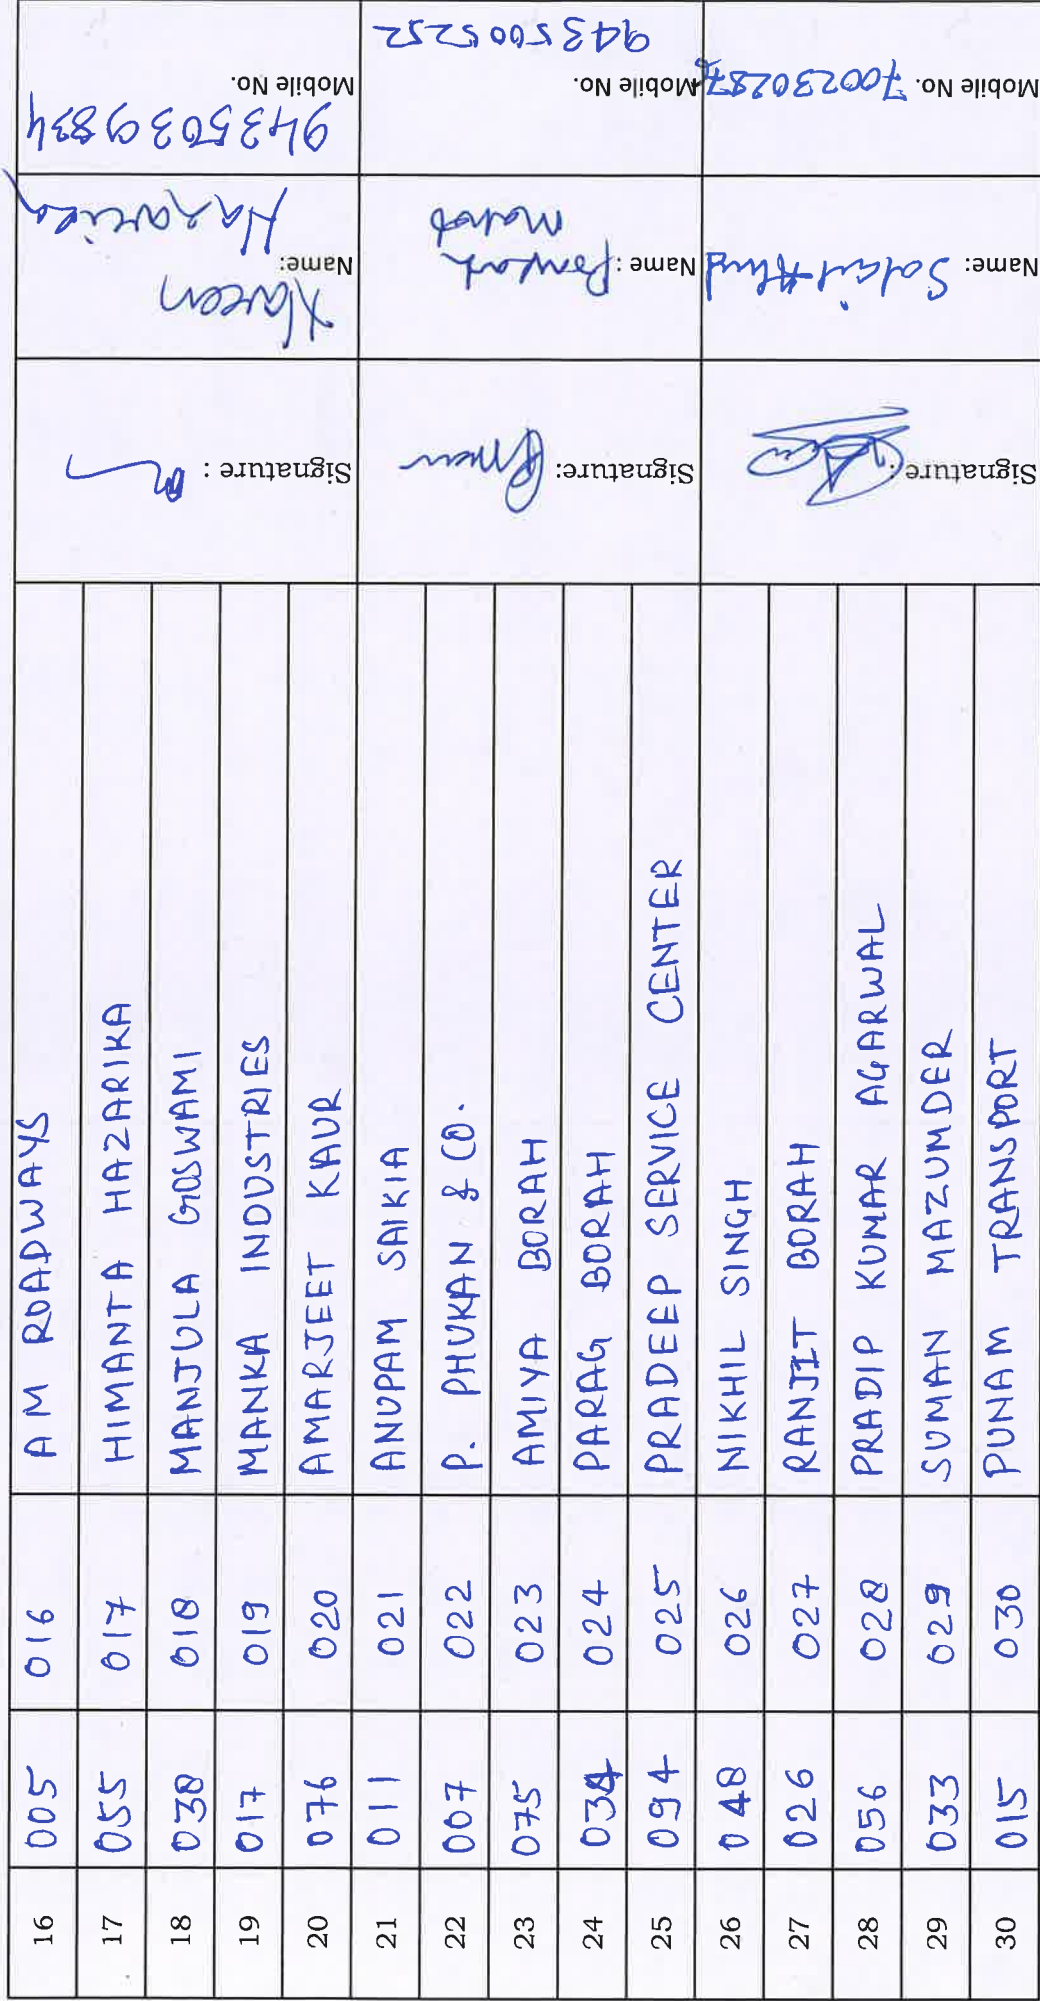 16 005 016 A M ROADWAYS
17 055 017 HIMANTA HAZARIKA
18 038 018 MANJULA GOSWAMI
19 017 019 MANKA INDUSTRIES
20 076 020 AMARJEET KAUR
21 011 021 ANUPAM SAIKIA
22 007 022 P. PHUKAN & CO.
23 075 023 AMIYA BORAH
24 034 024 PARAG BORAH
25 094 025 PRADEEP SERVICE CENTER
26 048 026 NIKHIL SINGH
27 026 027 RANJIT BORAH
28 056 028 PRADIP KUMAR AGARWAL
29 033 029 SUMAN MAZUMDER
30 015 030 PUNAM TRANSPORT
Signature :
Name:
Hazarika
Mobile No.
9435039834
Signature:
Name :
Mobile No.
9435005252
Signature :
Name:
Mobile No. 7002302875